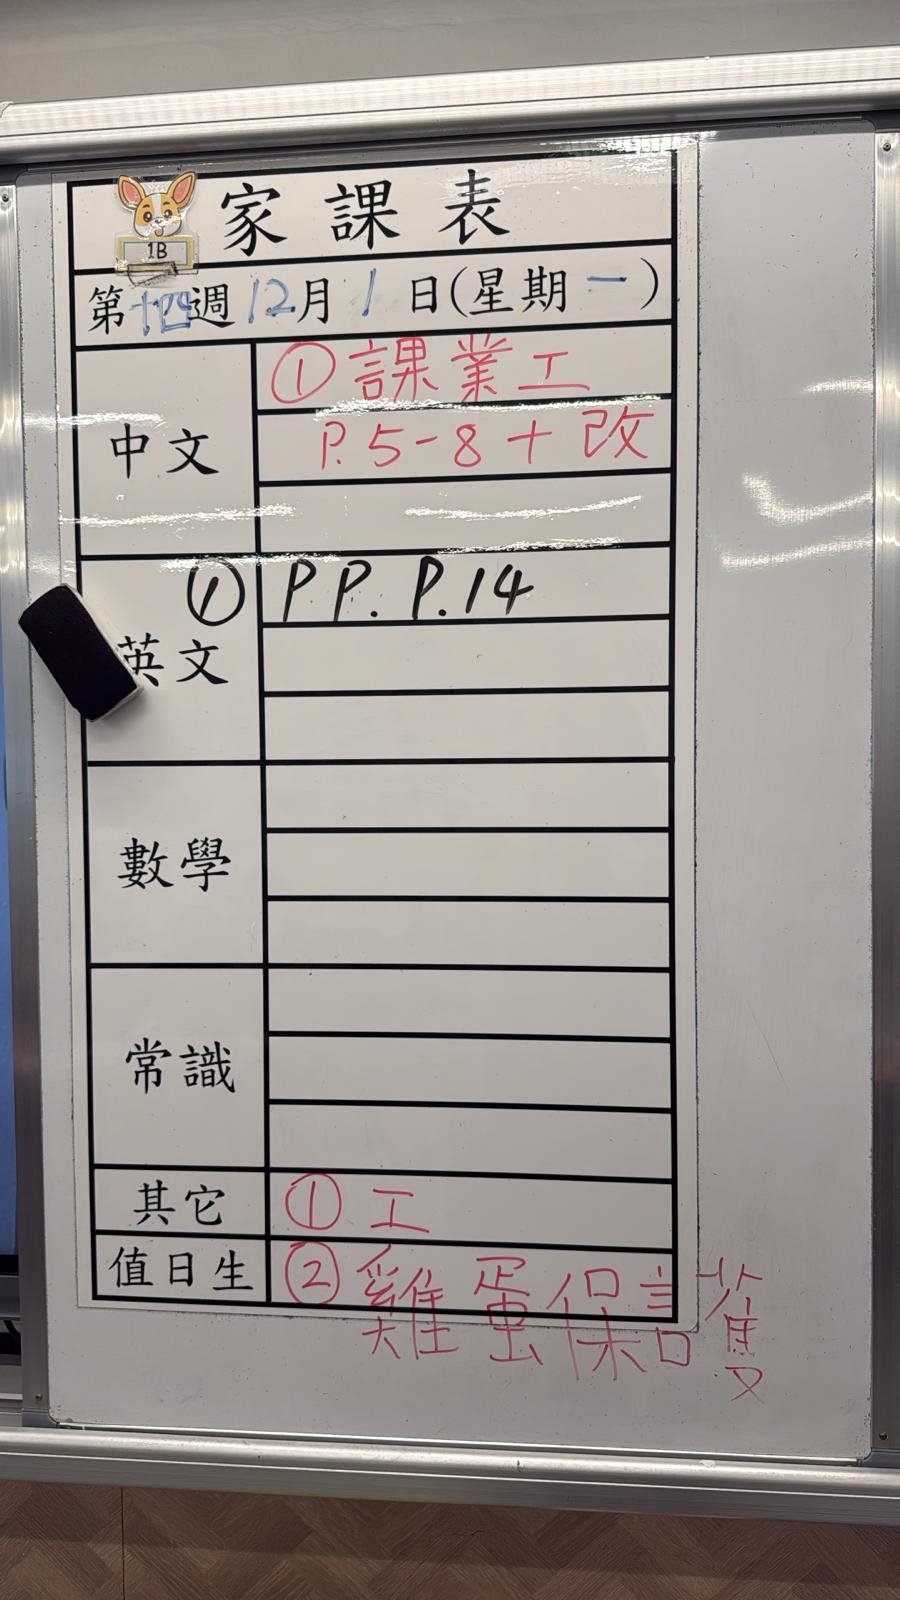 家課表
1B
第十四週12月1日(星期一)
中文
①課業工
P.5-8+改
英文
① PP. P.14
數學
常識
其它
① 工
值日生
② 雞蛋保護